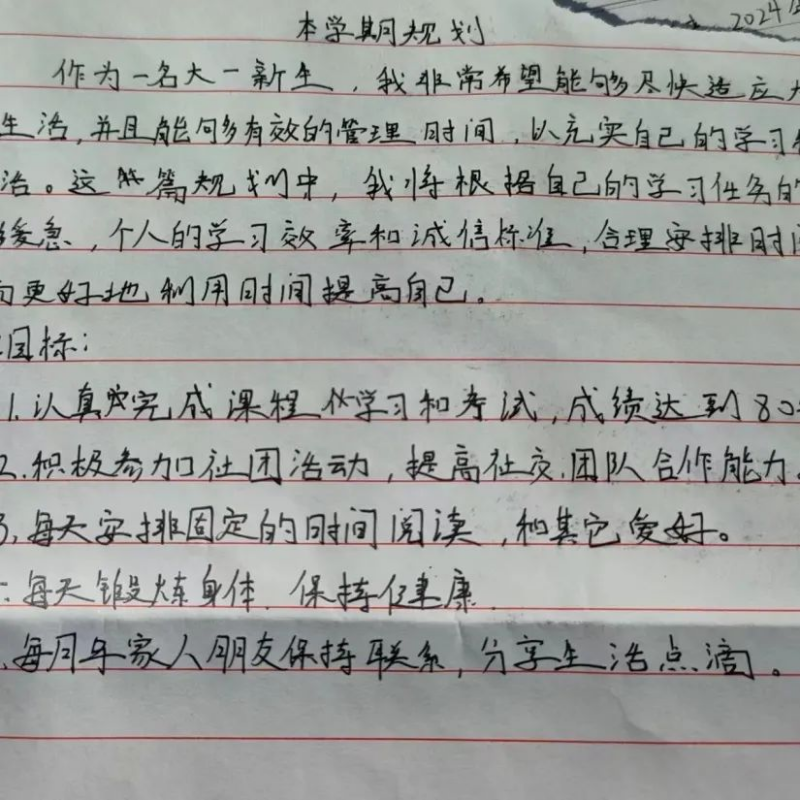 2024
本学期规划
作为一名大一新生，我非常希望能够尽快适应
生活，并且能够多有效的管理时间，以充实自己的学习
活。这篇规划中，我将根据自己的学习任务的
缓急，个人的学习效率和诚信标准，合理安排时
更好地利用时间提高自己。
目标：
1.认真完成课程学习和考试，成绩达到80
2.积极参加社团活动，提高社交.团队合作能力。
3.每天安排固定的时间阅读，和其它爱好。
每天锻炼身体.保持健康.
每月与家人朋友保持联系，分享生活点滴。